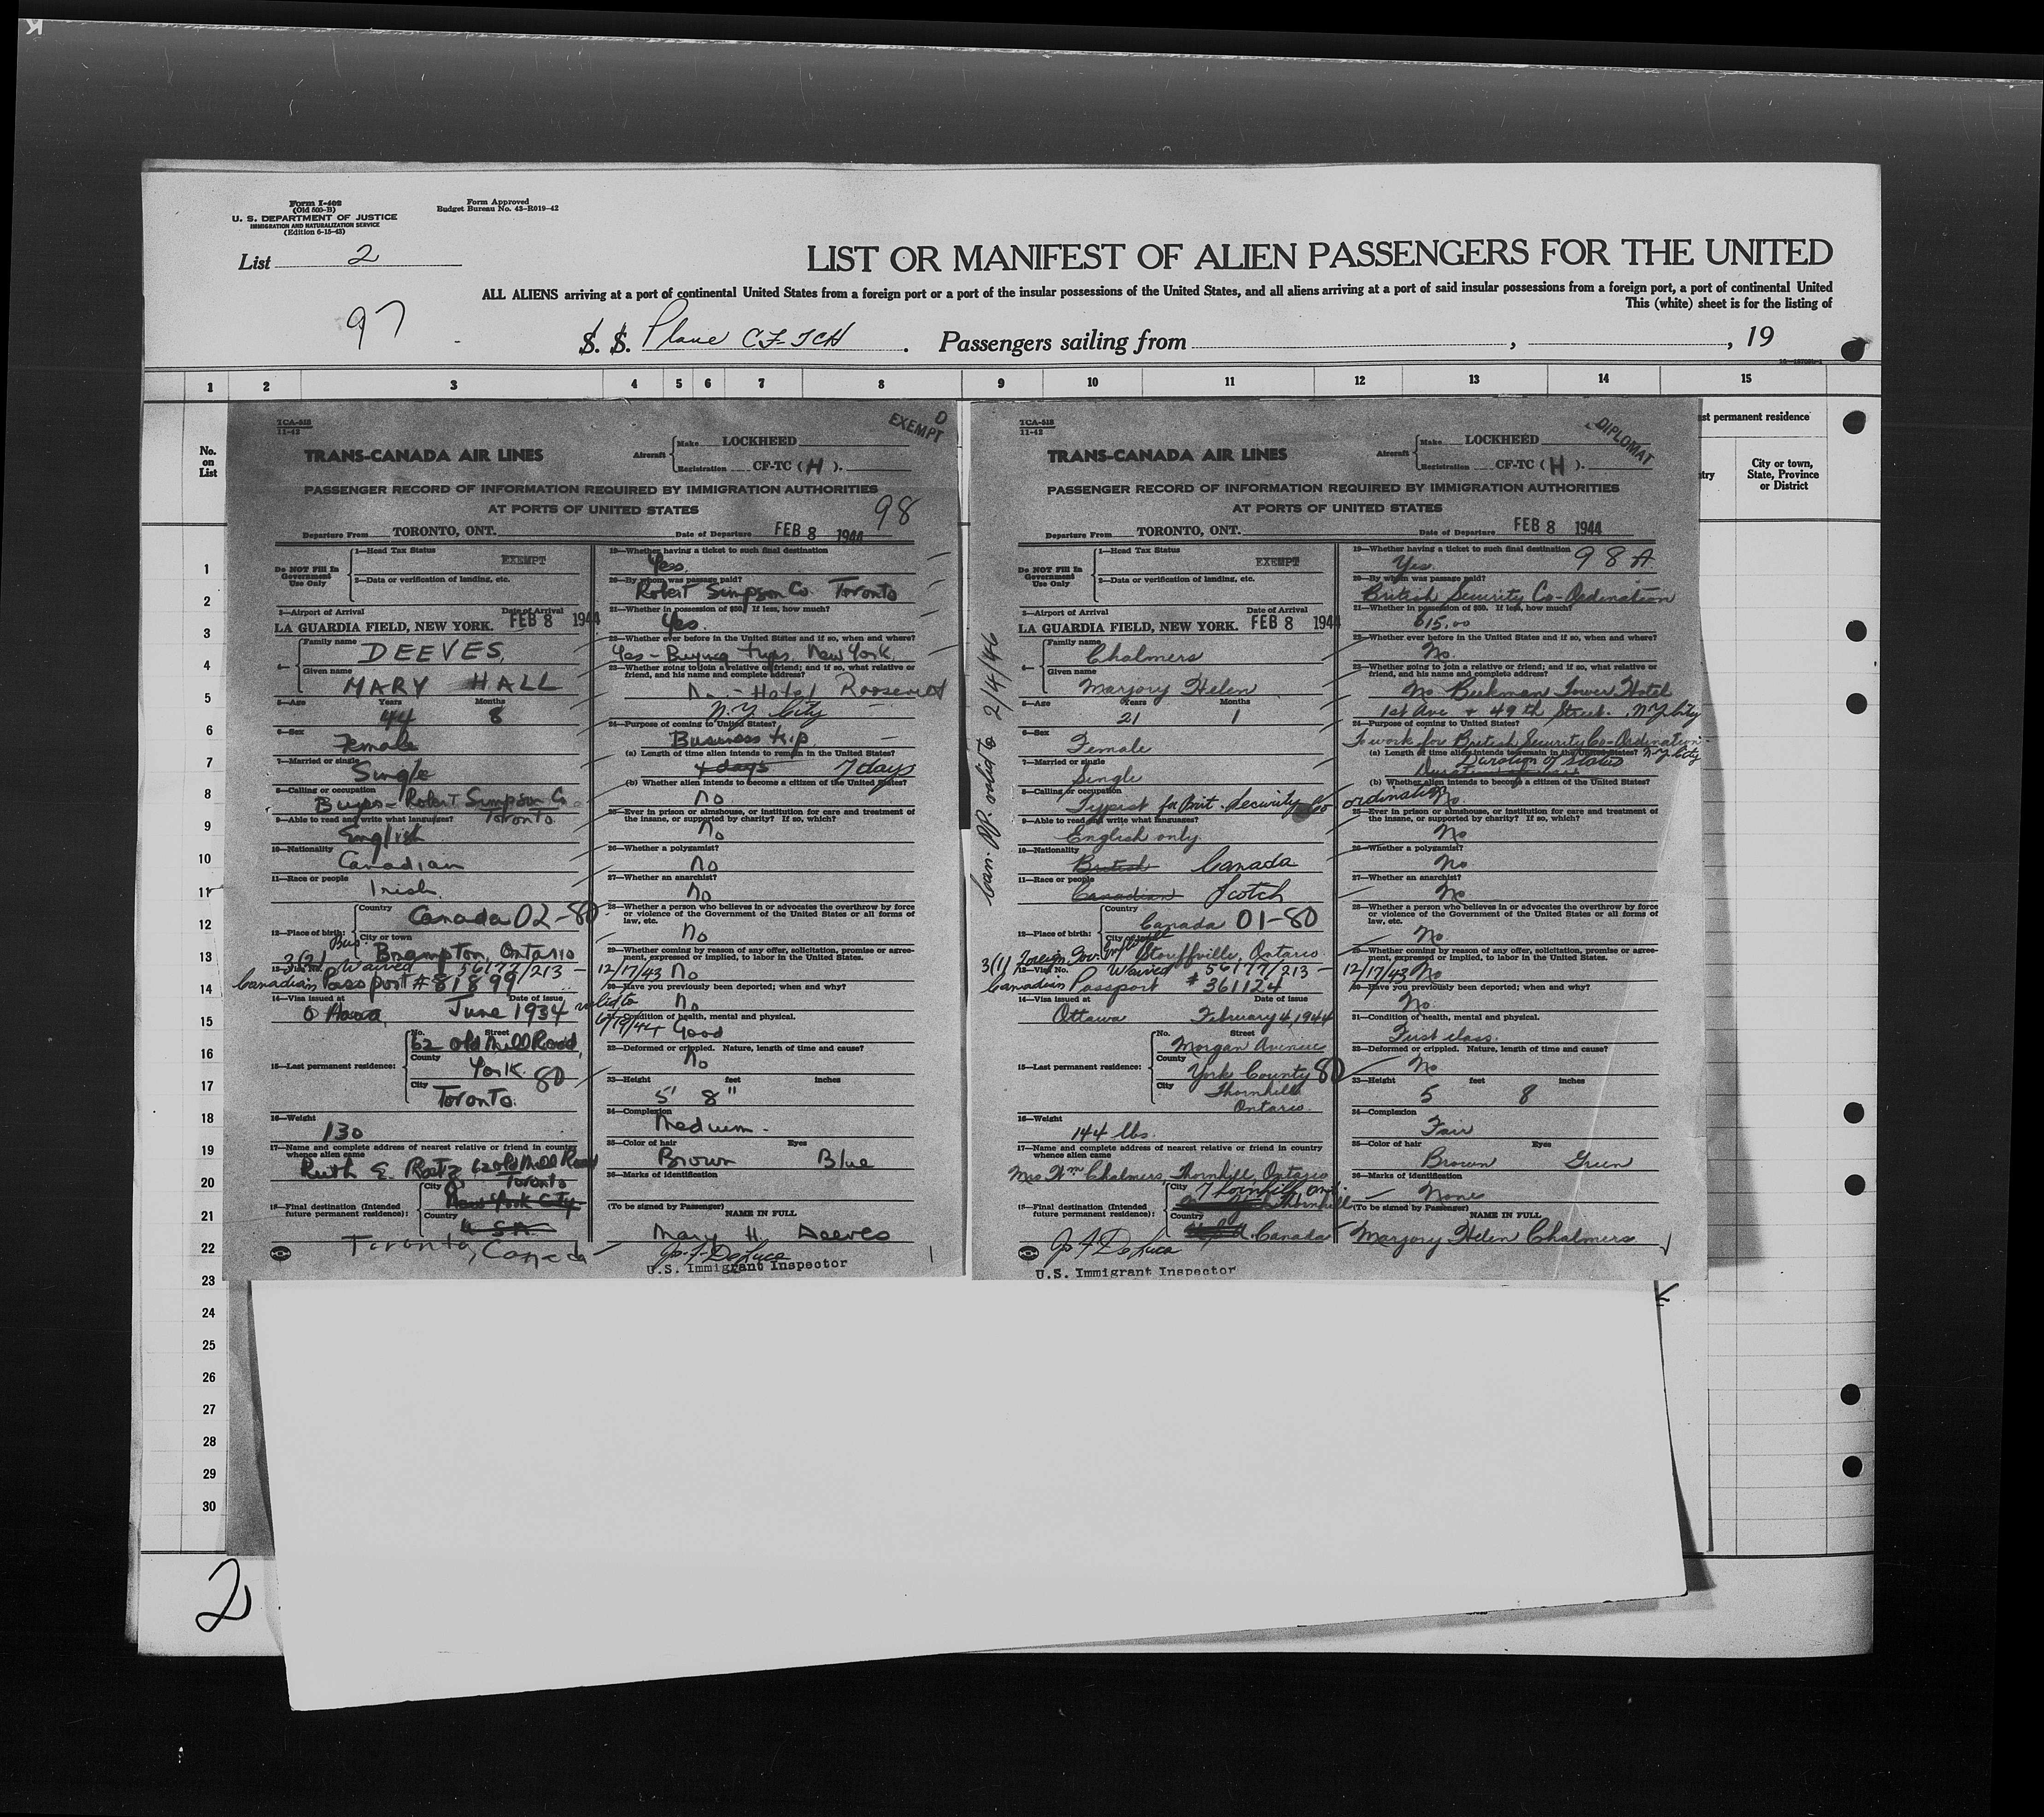 Form I-408
(Old 500-B)
U. S. DEPARTMENT OF JUSTICE
IMMIGRATION AND NATURALIZATION SERVICE
(Edition 6-15-43)
Form Approved
Budget Bureau No. 43-R019-42
List 2
LIST OR MANIFEST OF ALIEN PASSENGERS FOR THE UNITED
ALL ALIENS arriving at a port of continental United States from a foreign port or a port of the insular possessions of the United States, and all aliens arriving at a port of said insular possessions from a foreign port, a port of continental United
This (white) sheet is for the listing of
97
S. S. Plane CF TCH . Passengers sailing from , , 19
1 2 3 4 5 6 7 8 9 10 11 12 13 14 15
No. on List
st permanent residence
try
City or town, State, Province or District
1
2
3
4
5
6
7
8
9
10
11
12
13
14
15
16
17
18
19
20
21
22
23
24
25
26
27
28
29
30
2
TCA-518
11-42
EXEMPT
D
TRANS-CANADA AIR LINES
Aircraft
Make LOCKHEED
Registration CF-TC ( H ).
PASSENGER RECORD OF INFORMATION REQUIRED BY IMMIGRATION AUTHORITIES
AT PORTS OF UNITED STATES
98
Departure From TORONTO, ONT. Date of Departure FEB 8 1944
Do NOT Fill In Government Use Only
1—Head Tax Status
EXEMPT
2—Data or verification of landing, etc.
3—Airport of Arrival Date of Arrival
LA GUARDIA FIELD, NEW YORK. FEB 8 1944
4— Family name
DEEVES,
Given name
MARY HALL
5—Age Years Months
44 8
6—Sex
Female
7—Married or single
Single
8—Calling or occupation
Buyer - Robert Simpson Co
Toronto
9—Able to read and write what languages?
English
10—Nationality
Canadian
11—Race or people
Irish
12—Place of birth:
Country
Canada 02-80
City or town
Brampton, Ontario
Bus.
3(2) Waived 56177/213 - 12/17/43
13—Visa No.
Canadian Passport # 81899
14—Visa issued at Date of issue
Ottawa, June 1934
valid to
15—Last permanent residence:
No. Street
62 Old Mill Road,
County
York 80
City
Toronto.
16—Weight
130
17—Name and complete address of nearest relative or friend in country whence alien came
Ruth E. 62 Old Mill Road
Toronto
18—Final destination (Intended future permanent residence):
City
New York City
Country
U S A
Toronto, Canada
19—Whether having a ticket to such final destination
Yes.
20—By whom was passage paid?
Robert Simpson Co. Toronto
21—Whether in possession of $50. If less, how much?
Yes.
22—Whether ever before in the United States and if so, when and where?
Yes - Buying trips, New York
23—Whether going to join a relative or friend; and if so, what relative or friend, and his name and complete address?
No - Hotel Roosevelt
N.Y. City
24—Purpose of coming to United States?
Business trip
(a) Length of time alien intends to remain in the United States?
4 days 7 days
(b) Whether alien intends to become a citizen of the United States?
No
25—Ever in prison or almshouse, or institution for care and treatment of the insane, or supported by charity? If so, which?
No
26—Whether a polygamist?
No
27—Whether an anarchist?
No
28—Whether a person who believes in or advocates the overthrow by force or violence of the Government of the United States or all forms of law, etc.
No
29—Whether coming by reason of any offer, solicitation, promise or agreement, expressed or implied, to labor in the United States.
No
30—Have you previously been deported; when and why?
No
31—Condition of health, mental and physical.
Good
32—Deformed or crippled. Nature, length of time and cause?
No
33—Height feet inches
5' 8"
34—Complexion
Medium.
35—Color of hair Eyes
Brown Blue
36—Marks of identification
(To be signed by Passenger)
NAME IN FULL
Mary H. Deeves
Jos F. DeLuca
U.S. Immigrant Inspector
TCA-518
11-42
DIPLOMAT
TRANS-CANADA AIR LINES
Aircraft
Make LOCKHEED
Registration CF-TC ( H ).
PASSENGER RECORD OF INFORMATION REQUIRED BY IMMIGRATION AUTHORITIES
AT PORTS OF UNITED STATES
Departure From TORONTO, ONT. Date of Departure FEB 8 1944
98 A
Can. PP. valid to 2/4/46
Do NOT Fill In Government Use Only
1—Head Tax Status
EXEMPT
2—Data or verification of landing, etc.
3—Airport of Arrival Date of Arrival
LA GUARDIA FIELD, NEW YORK. FEB 8 1944
4— Family name
Chalmers
Given name
Marjory Helen
5—Age Years Months
21 1
6—Sex
Female
7—Married or single
Single
8—Calling or occupation
Typist for Brit. Security Co ordination
9—Able to read and write what languages?
English only.
10—Nationality
British Canada
11—Race or people
Canadian Scotch
12—Place of birth:
Country
Canada 01-80
City or town
Stouffville, Ontario
3(1) Foreign Gov. Waived 56177/213 - 12/17/43
13—Visa No.
Canadian Passport # 361124
14—Visa issued at Date of issue
Ottawa February 4, 1944
15—Last permanent residence:
No. Street
Morgan Avenue
County
York County 80
City
Thornhill
Ontario.
16—Weight
144 lbs.
17—Name and complete address of nearest relative or friend in country whence alien came
Mrs Wm Chalmers, Thornhill, Ontario
18—Final destination (Intended future permanent residence):
City
Thornhill, Ont.
Country
Canada
Jos F DeLuca
U.S. Immigrant Inspector
19—Whether having a ticket to such final destination
Yes.
20—By whom was passage paid?
British Security Co-Ordination
21—Whether in possession of $50. If less, how much?
$15.00
22—Whether ever before in the United States and if so, when and where?
No.
23—Whether going to join a relative or friend; and if so, what relative or friend, and his name and complete address?
No. Beekman Tower Hotel
1st Ave + 49th Street. N Y City
24—Purpose of coming to United States?
To work for British Security Co-Ordination
N Y City
(a) Length of time alien intends to remain in the United States?
Duration of status
(b) Whether alien intends to become a citizen of the United States?
No.
25—Ever in prison or almshouse, or institution for care and treatment of the insane, or supported by charity? If so, which?
No
26—Whether a polygamist?
No
27—Whether an anarchist?
No.
28—Whether a person who believes in or advocates the overthrow by force or violence of the Government of the United States or all forms of law, etc.
No
29—Whether coming by reason of any offer, solicitation, promise or agreement, expressed or implied, to labor in the United States.
No
30—Have you previously been deported; when and why?
No.
31—Condition of health, mental and physical.
First class.
32—Deformed or crippled. Nature, length of time and cause?
No
33—Height feet inches
5 8
34—Complexion
Fair
35—Color of hair Eyes
Brown Green
36—Marks of identification
None
(To be signed by Passenger)
NAME IN FULL
Marjory Helen Chalmers